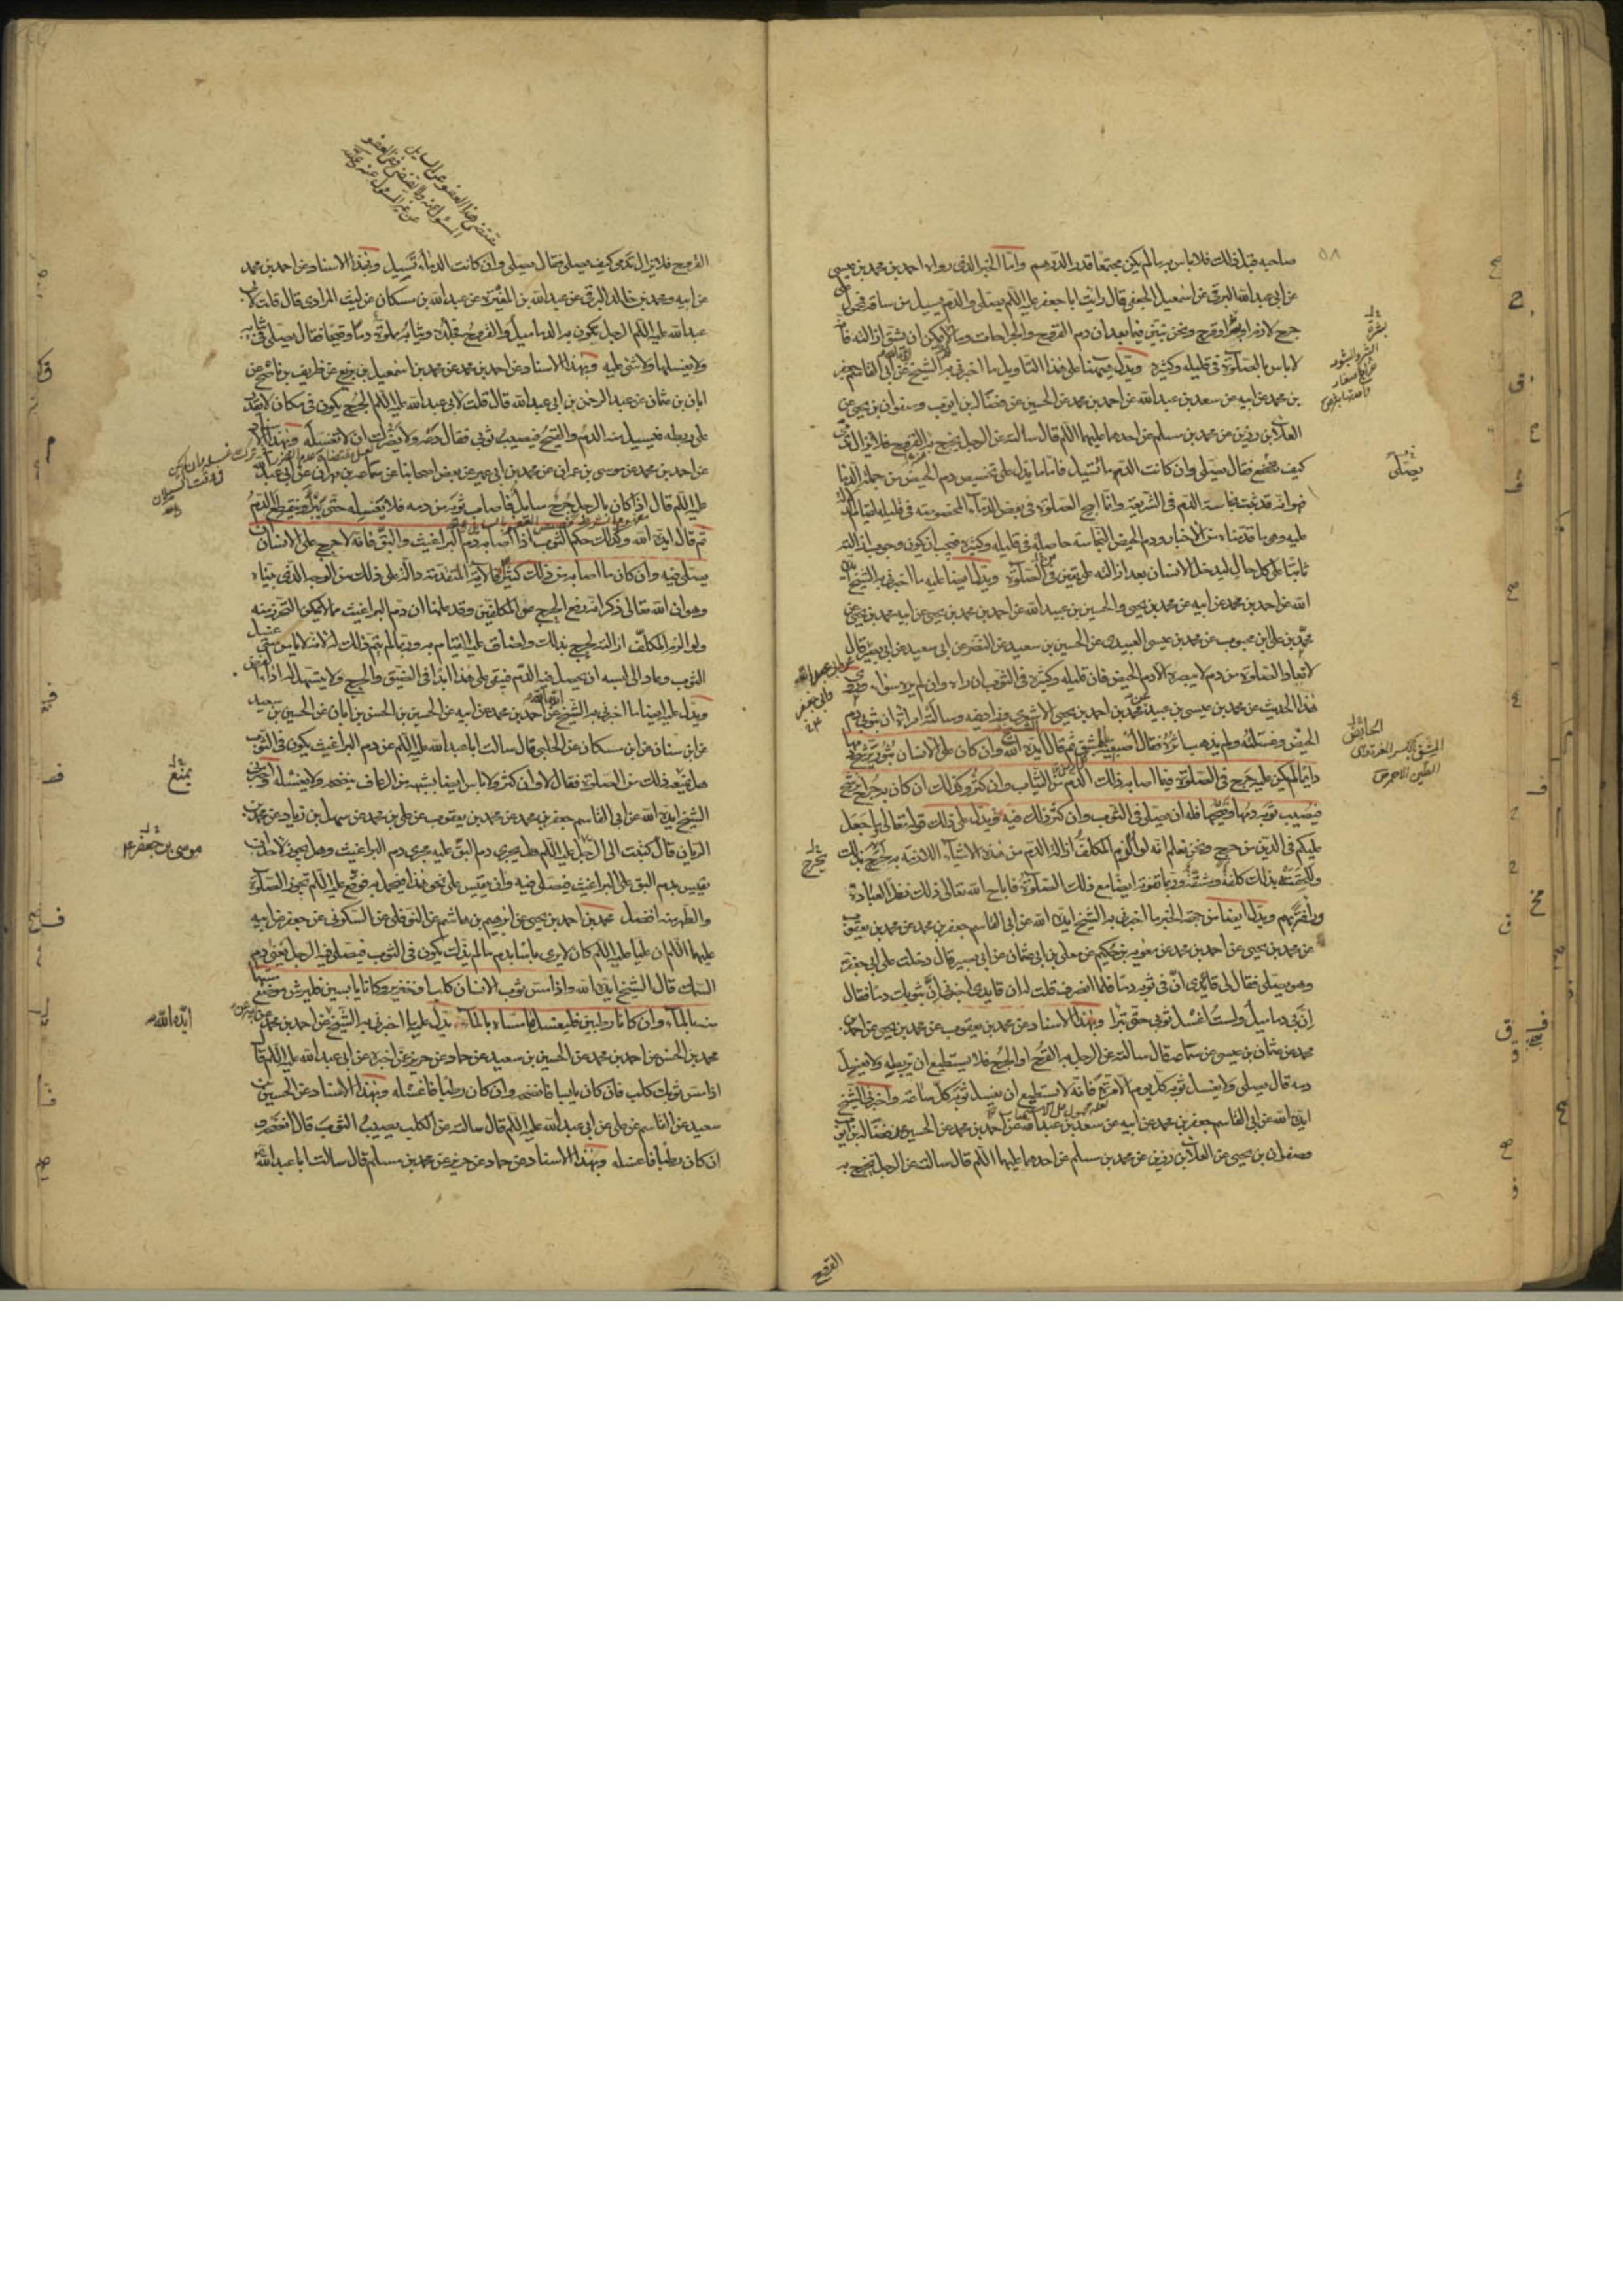 صاحبه قبل ذلك فلا باس به ما لم يكن مجتمعا قدر الدرهم واما الخبر الذى رواه احمد بن محمد بن عيسى
عن ابى عبد الله البرقى عن اسمعيل الجعفى قال رايت ابا جعفر عليه السلم يصلى والدم يسيل من ساقه فمحمول على
جرح لازم او قرح ونحن نبين فيما بعد ان دم القروح والجراحات وما لا يمكن ان يشق ازالته فا
لا باس بالصلوة فى قليله وكثيره ويدل ههنا على هذا التاويل ما اخبرنى به الشيخ عن ابى القاسم جعفر
بن محمد عن ابيه عن سعد بن عبد الله عن احمد بن محمد عن الحسين عن فضالة بن ايوب وصفوان بن يحيى عن
العلاء بن رزين عن محمد بن مسلم عن احدهما عليهما السلم قال سالته عن الرجل يخرج به القروح فلا تزال تدمى
كيف يصنع فقال يصلى وان كانت الدم ما تسيل فاما ما يدل على تخصيص دم الحيض من جملة الدماء
فهو انه قد ثبت نجاسة الدم فى الشريعة وانما ابيح الصلوة فى بعض الدماء المخصوصة فى قليله لقيام الدلالة
عليه وهى ما قدمناه من الاخبار ودم الحيض النجاسة حاصلة فى قليله وكثيره فيجب ان يكون وجوب ازالته
ثابتا على كل حال ليدخل الانسان بعد ازالته على يقين فى الصلوة ويدل ايضا عليه ما اخبرنى به الشيخ ايده
الله عن احمد بن محمد عن ابيه عن محمد بن يحيى والحسين بن عبيد الله عن احمد بن محمد بن يحيى عن ابيه محمد بن يحيى عن
محمد بن على بن محبوب عن محمد بن عيسى العبيدى عن الحسين بن سعيد عن النضر عن ابى سعيد عن ابى بصير قال
لا تعاد الصلوة من دم لا يبصره الا دم الحيض فان قليله وكثيره فى الثوب ان راه وان لم يره سواء وروى
هذا الحديث عن محمد بن عيسى بن عبيد محمد بن احمد بن يحيى الاشعرى وزاد فيه وسالته امراة ان بثوبى دم
الحيض وغسلته ولم يذهب اثره فقال اصبغيه بمشق ثم قال ايده الله وان كان على الانسان بثور يرشح دمها
دايما لم يكن عليه حرج فى الصلوة فيما اصابه ذلك الدم من الثياب وان كثر وكذلك ان كان به جراح يرشح
فيصيب ثوبه دمها وقيحها فله ان يصلى فى الثوب وان كثر ذلك فيه ويدل على ذلك قوله تعالى ما جعل
عليكم فى الدين من حرج ونحن نعلم انه لو الزم المكلف ازالة الدم من هذه الاشياء اللازمة به لحرج بذلك
ولحقته بذلك كلفة ومشقة وربما تفوته ايضا مع ذلك الصلوة فاباح الله تعالى ذلك نظرا لعباده
ورافة بهم ويدل ايضا من جهة الخبر ما اخبرنى به الشيخ ايده الله عن ابى القاسم جعفر بن محمد عن محمد بن يعقوب
عن محمد بن يحيى عن احمد بن محمد عن معوية بن حكيم عن معلى بن ابى عثمان عن ابى بصير قال دخلت على ابى جعفر
وهو يصلى فقال لى قايدى ان فى ثوبه دما فلما انصرف قلت له ان قايدى اخبرنى ان بثوبك دما فقال
ان بى دماميل ولست اغسل ثوبى حتى تبرأ وبهذا الاسناد عن محمد بن يعقوب عن محمد بن يحيى عن احمد بن
محمد عن عثمان بن عيسى عن سماعة قال سالته عن الرجل به القرح او الجرح فلا يستطيع ان يربطه ولا يغسل
دمه قال يصلى ولا يغسل ثوبه كل يوم الا مرة فانه لا يستطيع ان يغسل ثوبه كل ساعة واخبرنى الشيخ
ايده الله عن ابى القاسم جعفر بن محمد عن ابيه عن سعد بن عبد الله عن احمد بن محمد عن الحسين عن فضالة بن ايوب
وصفوان بن يحيى عن العلاء بن رزين عن محمد بن مسلم عن احدهما عليهما السلم قال سالته عن الرجل يخرج به
القروح
٥٨
يصلى
موسى بن جعفر
ايده الله
يمنع
القروح فلا يزال تدمى كيف يصلى فقال يصلى وان كانت الدماء تسيل وبهذا الاسناد عن احمد بن محمد
عن ابيه ومحمد بن خالد البرقى عن عبد الله بن المغيرة عن عبد الله بن مسكان عن ليث المرادى قال قلت لابى
عبد الله عليه السلم الرجل يكون به الدماميل والقروح فجلده وثيابه مملوة دما وقيحا فقال يصلى فى ثيابه
ولا يغسلها ولا شئ عليه وبهذا الاسناد عن احمد بن محمد عن محمد بن اسمعيل بن بزيع عن ظريف بن ناصح عن
ابان بن عثمان عن عبد الرحمن بن ابى عبد الله قال قلت لابى عبد الله عليه السلم الجرح يكون فى مكان لا يقدر
على ربطه فيسيل منه الدم والقيح فيصيب ثوبى فقال دعه ولا يضرك ان لا تغسله وبهذا الاسناد
عن احمد بن محمد عن موسى بن عمران عن محمد بن ابى عمير عن بعض اصحابنا عن سماعة بن مهران عن ابى عبد الله
عليه السلم قال اذا كان بالرجل جرح سايل فاصاب ثوبه من دمه فلا يغسله حتى يبرأ وينقطع الدم
ثم قال ايده الله وكذلك حكم الثوب اذا اصابه دم البراغيث والبق فانه لا حرج على الانسان ان
يصلى فيه وان كان ما اصابه من ذلك كثيرا فالاية المتقدمة دالة على ذلك من الوجه الذى بيناه
وهو ان الله تعالى ذكر انه رفع الحرج عن المكلفين وقد علمنا ان دم البراغيث مما لا يمكن التحرز منه
ولو الزم المكلف ازالته لحرج بذلك ولضاق عليه القيام به وربما لم يتم ذلك له لانه لا يامن متى غسل
الثوب وعاد الى لبسه ان يحصل فيه الدم فيبقى على هذا ابدا فى الضيق والحرج ولا يتسهل له اداء الفرض
ويدل عليه ايضا ما اخبرنى به الشيخ عن احمد بن محمد عن ابيه عن الحسين بن الحسن بن ابان عن الحسين بن سعيد
عن ابن سنان عن ابن مسكان عن الحلبى قال سالت ابا عبد الله عليه السلم عن دم البراغيث يكون فى الثوب
هل يمنعه ذلك من الصلوة فقال لا وان كثر ولا باس ايضا بشبهه من الرعاف ينضحه ولا يغسله واخبرنى
الشيخ ايده الله عن ابى القاسم جعفر بن محمد عن محمد بن يعقوب عن على بن محمد عن سهل بن زياد عن محمد بن
الريان قال كتبت الى الرجل عليه السلم هل يجرى دم البق عليه مجرى دم البراغيث وهل يجوز لاحد ان
يقيس بدم البق على البراغيث فيصلى فيه وان يقيس على نحو هذا فيعمل به فوقع عليه السلم تجوز الصلوة
والطهر منه افضل محمد بن احمد بن يحيى عن ابرهيم بن هاشم عن النوفلى عن السكونى عن جعفر عن ابيه
عليهما السلم ان عليا عليه السلم كان لا يرى باسا بدم ما لم يذك يكون فى الثوب فيصلى فيه الرجل يعنى دم
السمك قال الشيخ ايده الله واذا مس ثوب الانسان كلب او خنزير وكانا يابسين فليرش موضع مسهما
منه بالماء وان كانا رطبين فليغسل ما مساه بالماء يدل عليه ما اخبرنى به الشيخ عن احمد بن محمد عن ابيه عن
محمد بن الحسن عن احمد بن محمد عن الحسين بن سعيد عن حماد عن حريز عمن اخبره عن ابى عبد الله عليه السلم قال
اذا مس ثوبك كلب فان كان يابسا فانضحه وان كان رطبا فاغسله وبهذا الاسناد عن الحسين بن
سعيد عن القاسم عن على عن ابى عبد الله عليه السلم قال سالته عن الكلب يصيب الثوب قال انضحه و
ان كان رطبا فاغسله وبهذا الاسناد عن حماد عن حريز عن محمد بن مسلم قال سالت ابا عبد الله